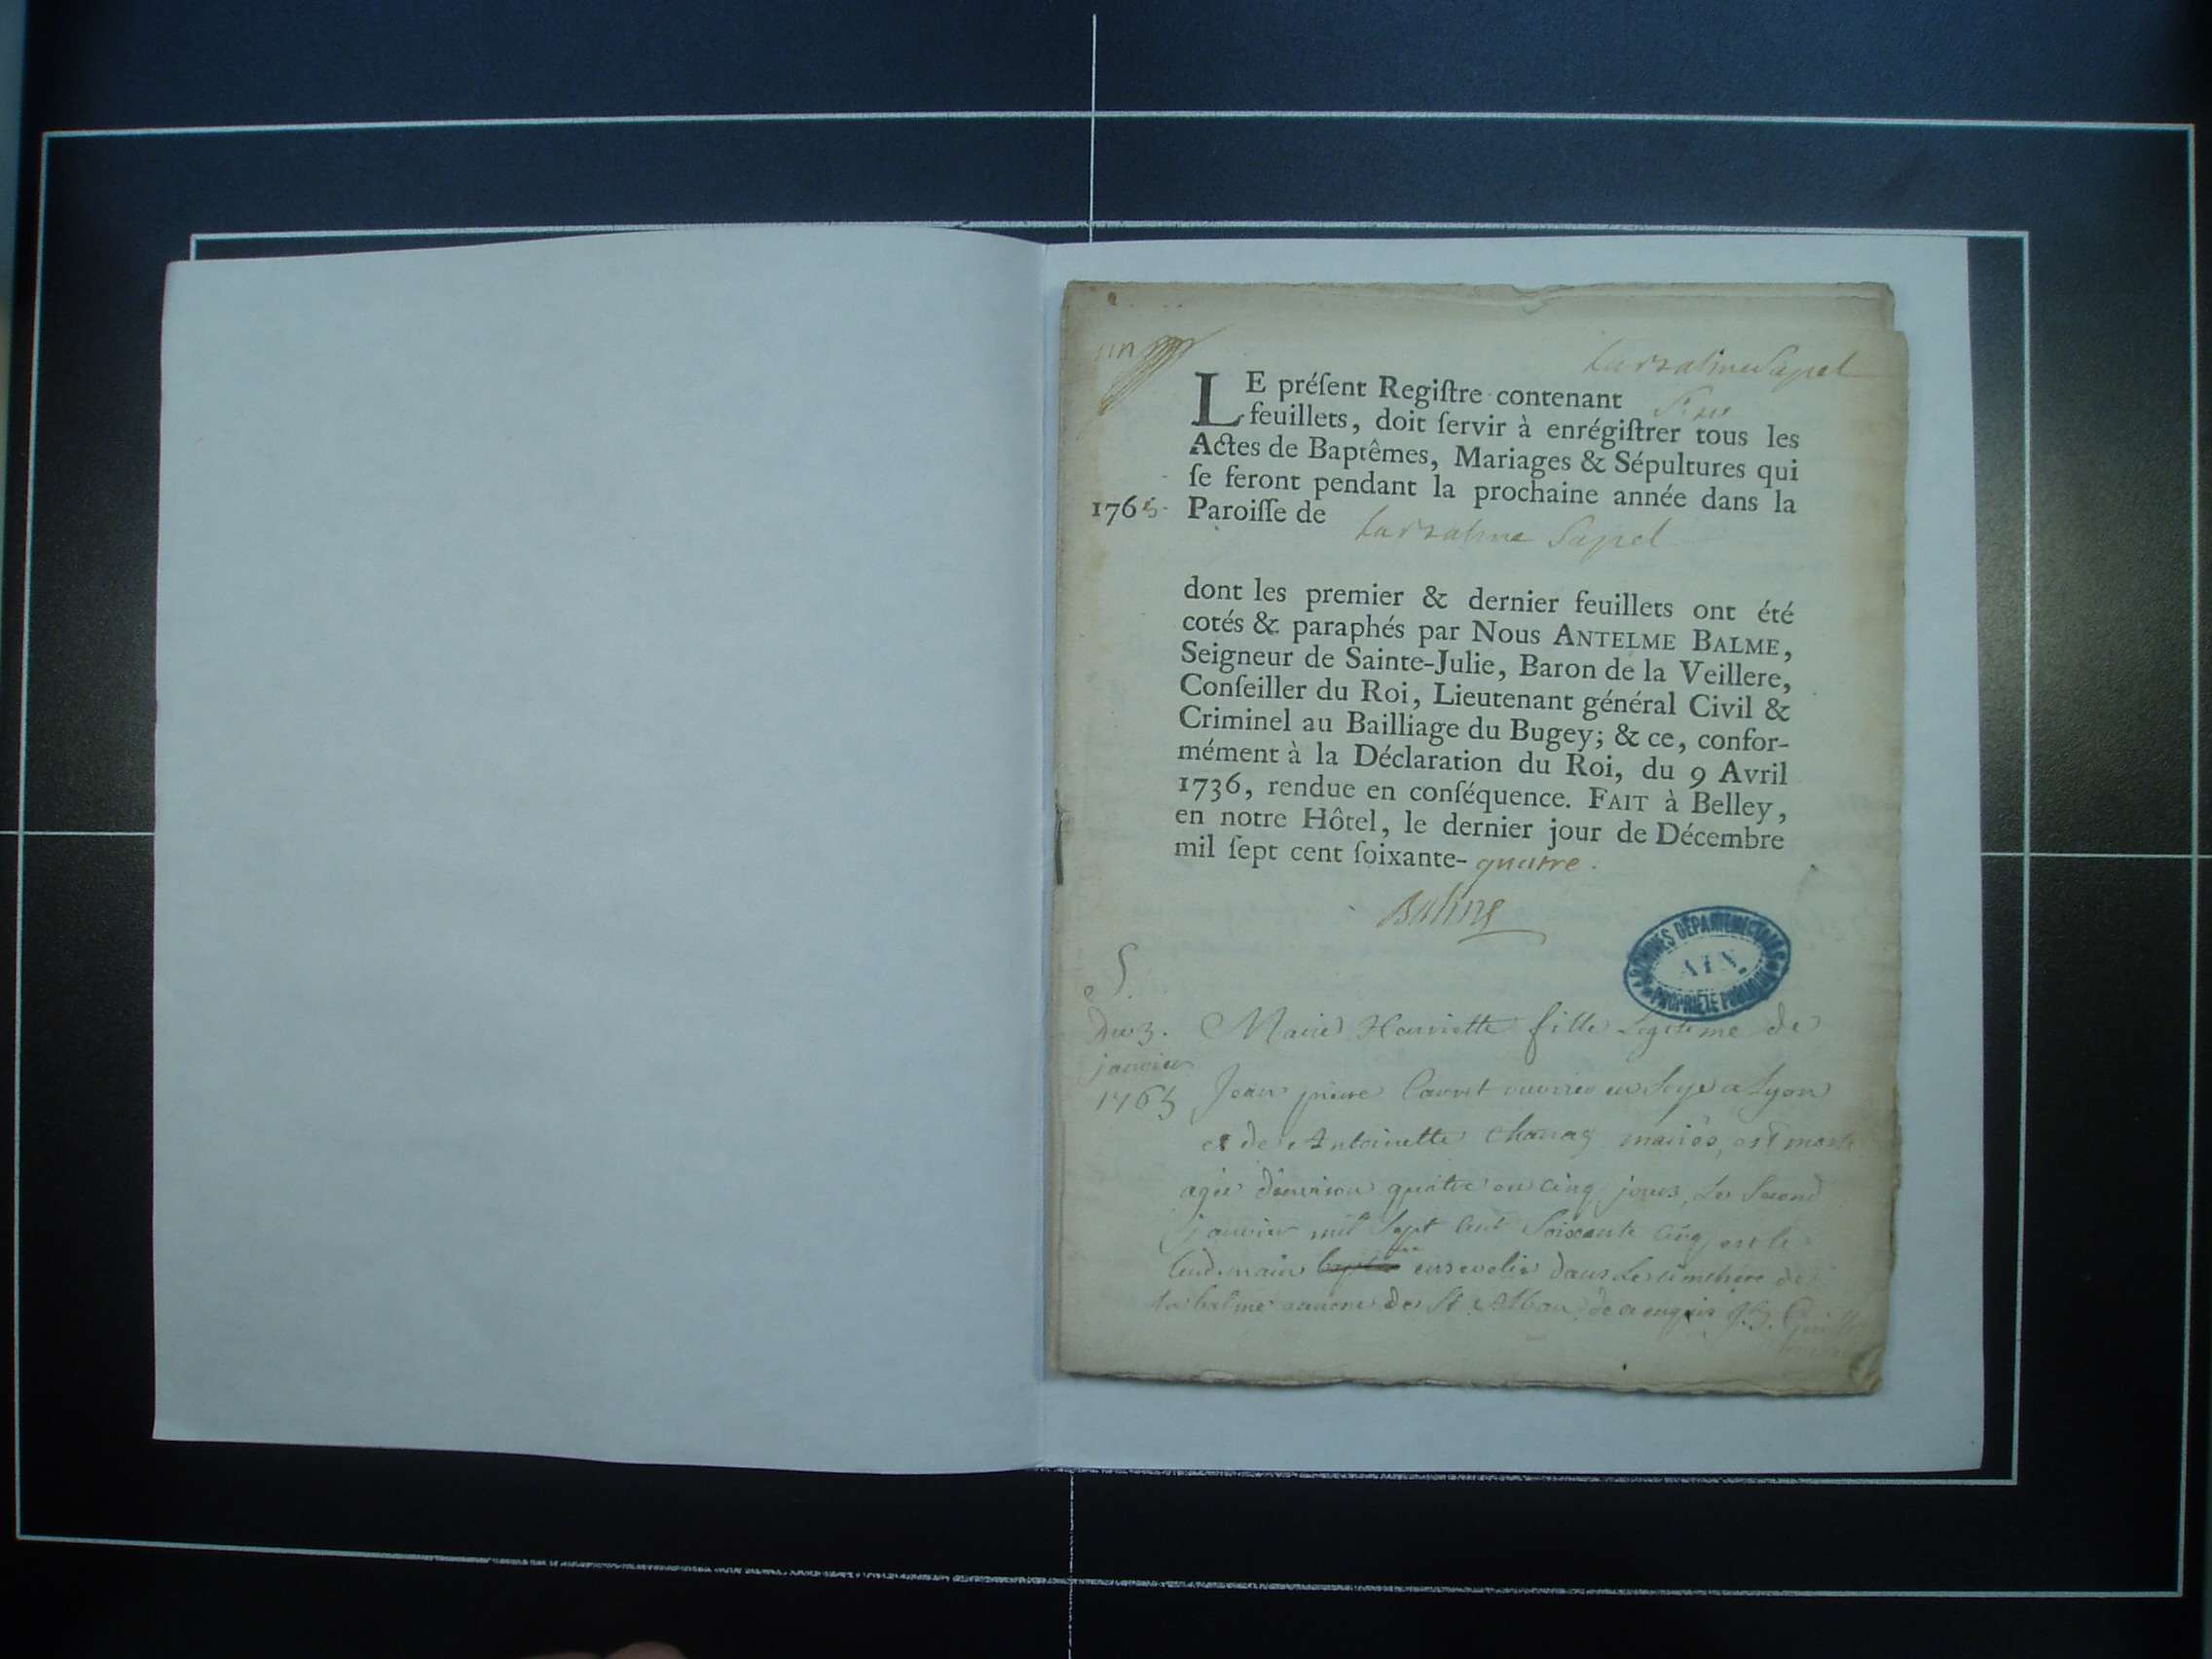 un
La Balme Sapel
LE préſent Regiſtre contenant Six
feuillets, doit ſervir à enrégiſtrer tous les
Actes de Baptêmes, Mariages & Sépultures qui
ſe feront pendant la prochaine année dans la
1765. Paroiſſe de La Balme Sapel
dont les premier & dernier feuillets ont été
cotés & paraphés par Nous ANTELME BALME,
Seigneur de Sainte-Julie, Baron de la Veillere,
Conſeiller du Roi, Lieutenant général Civil &
Criminel au Bailliage du Bugey; & ce, confor-
mément à la Déclaration du Roi, du 9 Avril
1736, rendue en conſéquence. FAIT à Belley,
en notre Hôtel, le dernier jour de Décembre
mil ſept cent ſoixante- quatre.
Balme
ARCHIVES DÉPARTEMENTALES
AIN.
PROPRIÉTÉ PUBLIQUE
S.
Du 3. Marie Henriette fille Legitime de
janvier
1765 Jean pierre ouvrier en Soye a Lyon
et de Antoinette mariés, est morte
agée d'environ quatre ou cinq jours, Le Second
janvier mil Sept Cent Soixante Cinq et le
Lendemain ensevelie dans Le cimetiere de
la balme annexe de St Alban, de ce enquis J. B.